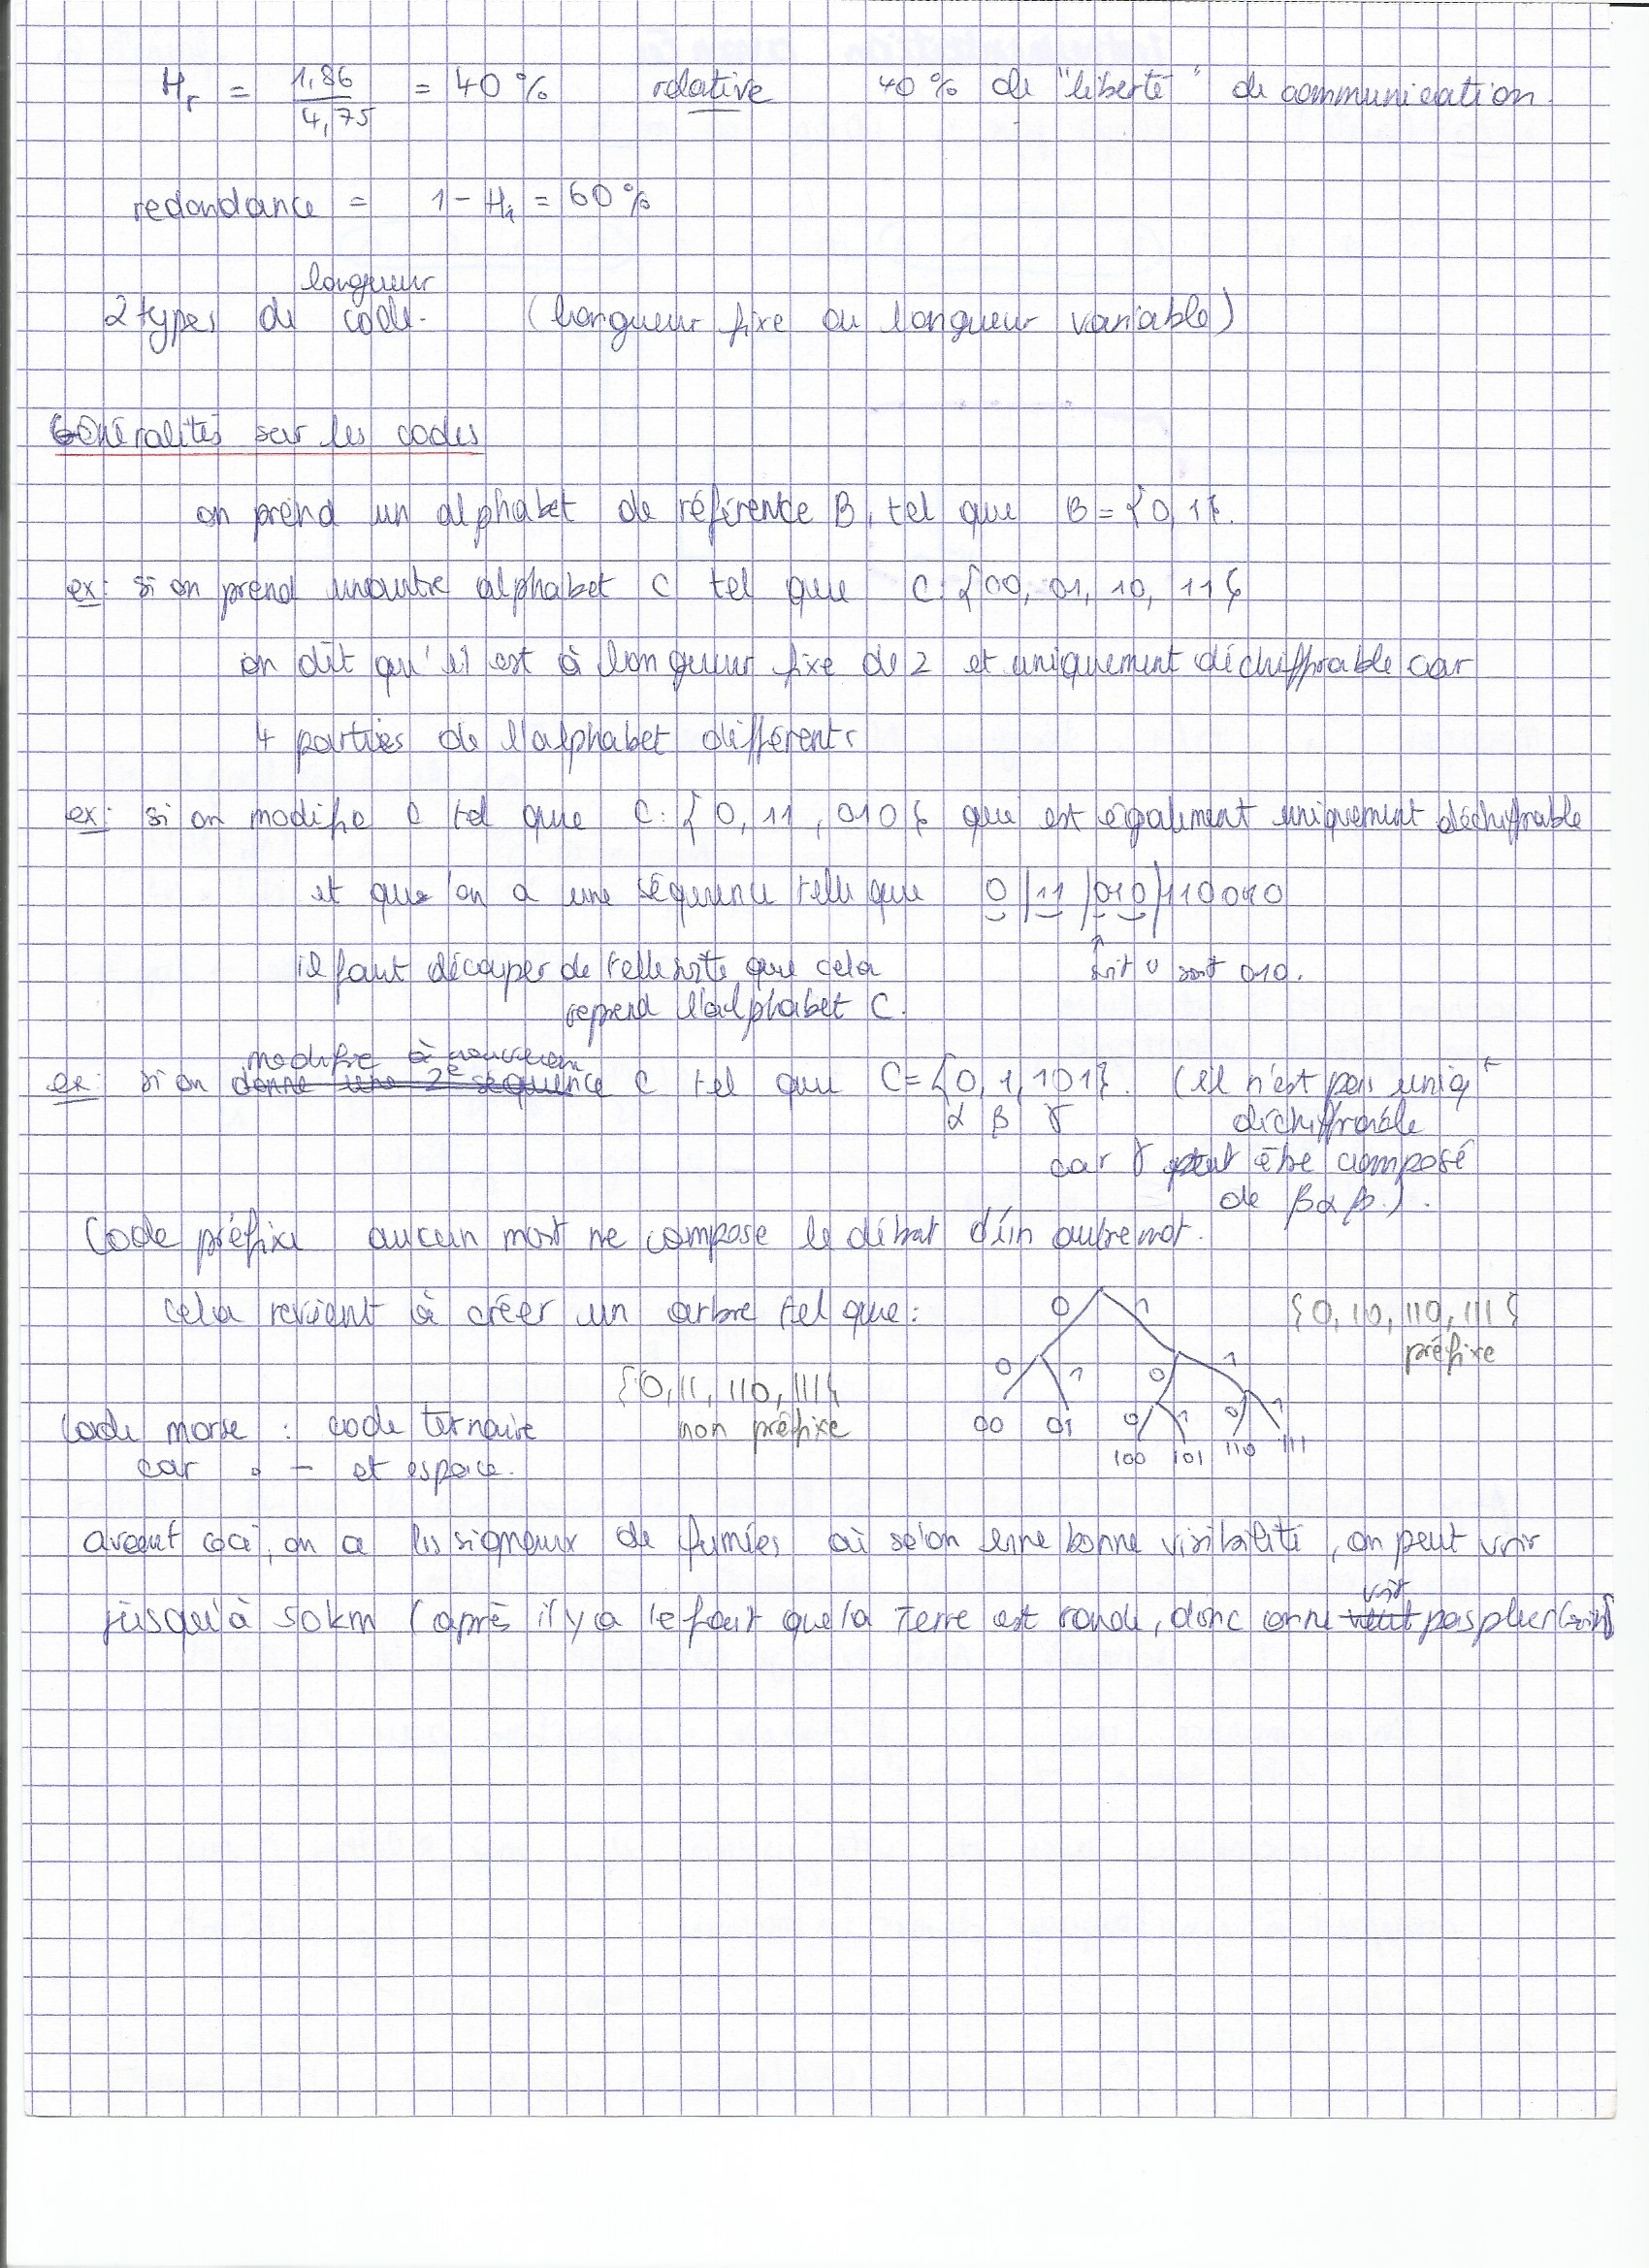 Hr = 1,86 / 4,75 = 40 % relative 40 % de "liberté" de communication.
redondance = 1 - Hr = 60 %
longueur
2 types de code. (longueur fixe ou longueur variable)
Généralités sur les codes
on prend un alphabet de référence B, tel que B = {0, 1}.
ex: si on prend un autre alphabet C tel que C: {00, 01, 10, 11}
on dit qu'il est à longueur fixe de 2 et uniquement déchiffrable car
4 parties de l'alphabet différents
ex: si on modifie C tel que C: {0, 11, 010} qui est également uniquement déchiffrable
et que l'on a une séquence telle que 0/11/010/110010
il faut découper de telle sorte que cela soit 0 soit 010.
reprend l'alphabet C.
modifie à nouveau
ex: si on donne une 2e séquence C tel que C = {0, 1, 101}. (il n'est pas uniqt
α β γ déchiffrable
car γ peut être composé
de β α β.).
Code préfixe aucun mot ne compose le début d'un autre mot.
cela revient à créer un arbre tel que: 0 1 {0, 10, 110, 111}
préfixe
0 1 0 1
{0, 11, 110, 111}
Code morse : code ternaire non préfixe 00 01 0 1 0 1
100 101 110 111
car . - et espace.
avant ceci, on a les signaux de fumées où selon une bonne visibilité, on peut voir
voit
jusqu'à 50 km (après il y a le fait que la Terre est ronde, donc on ne pas plus loin)